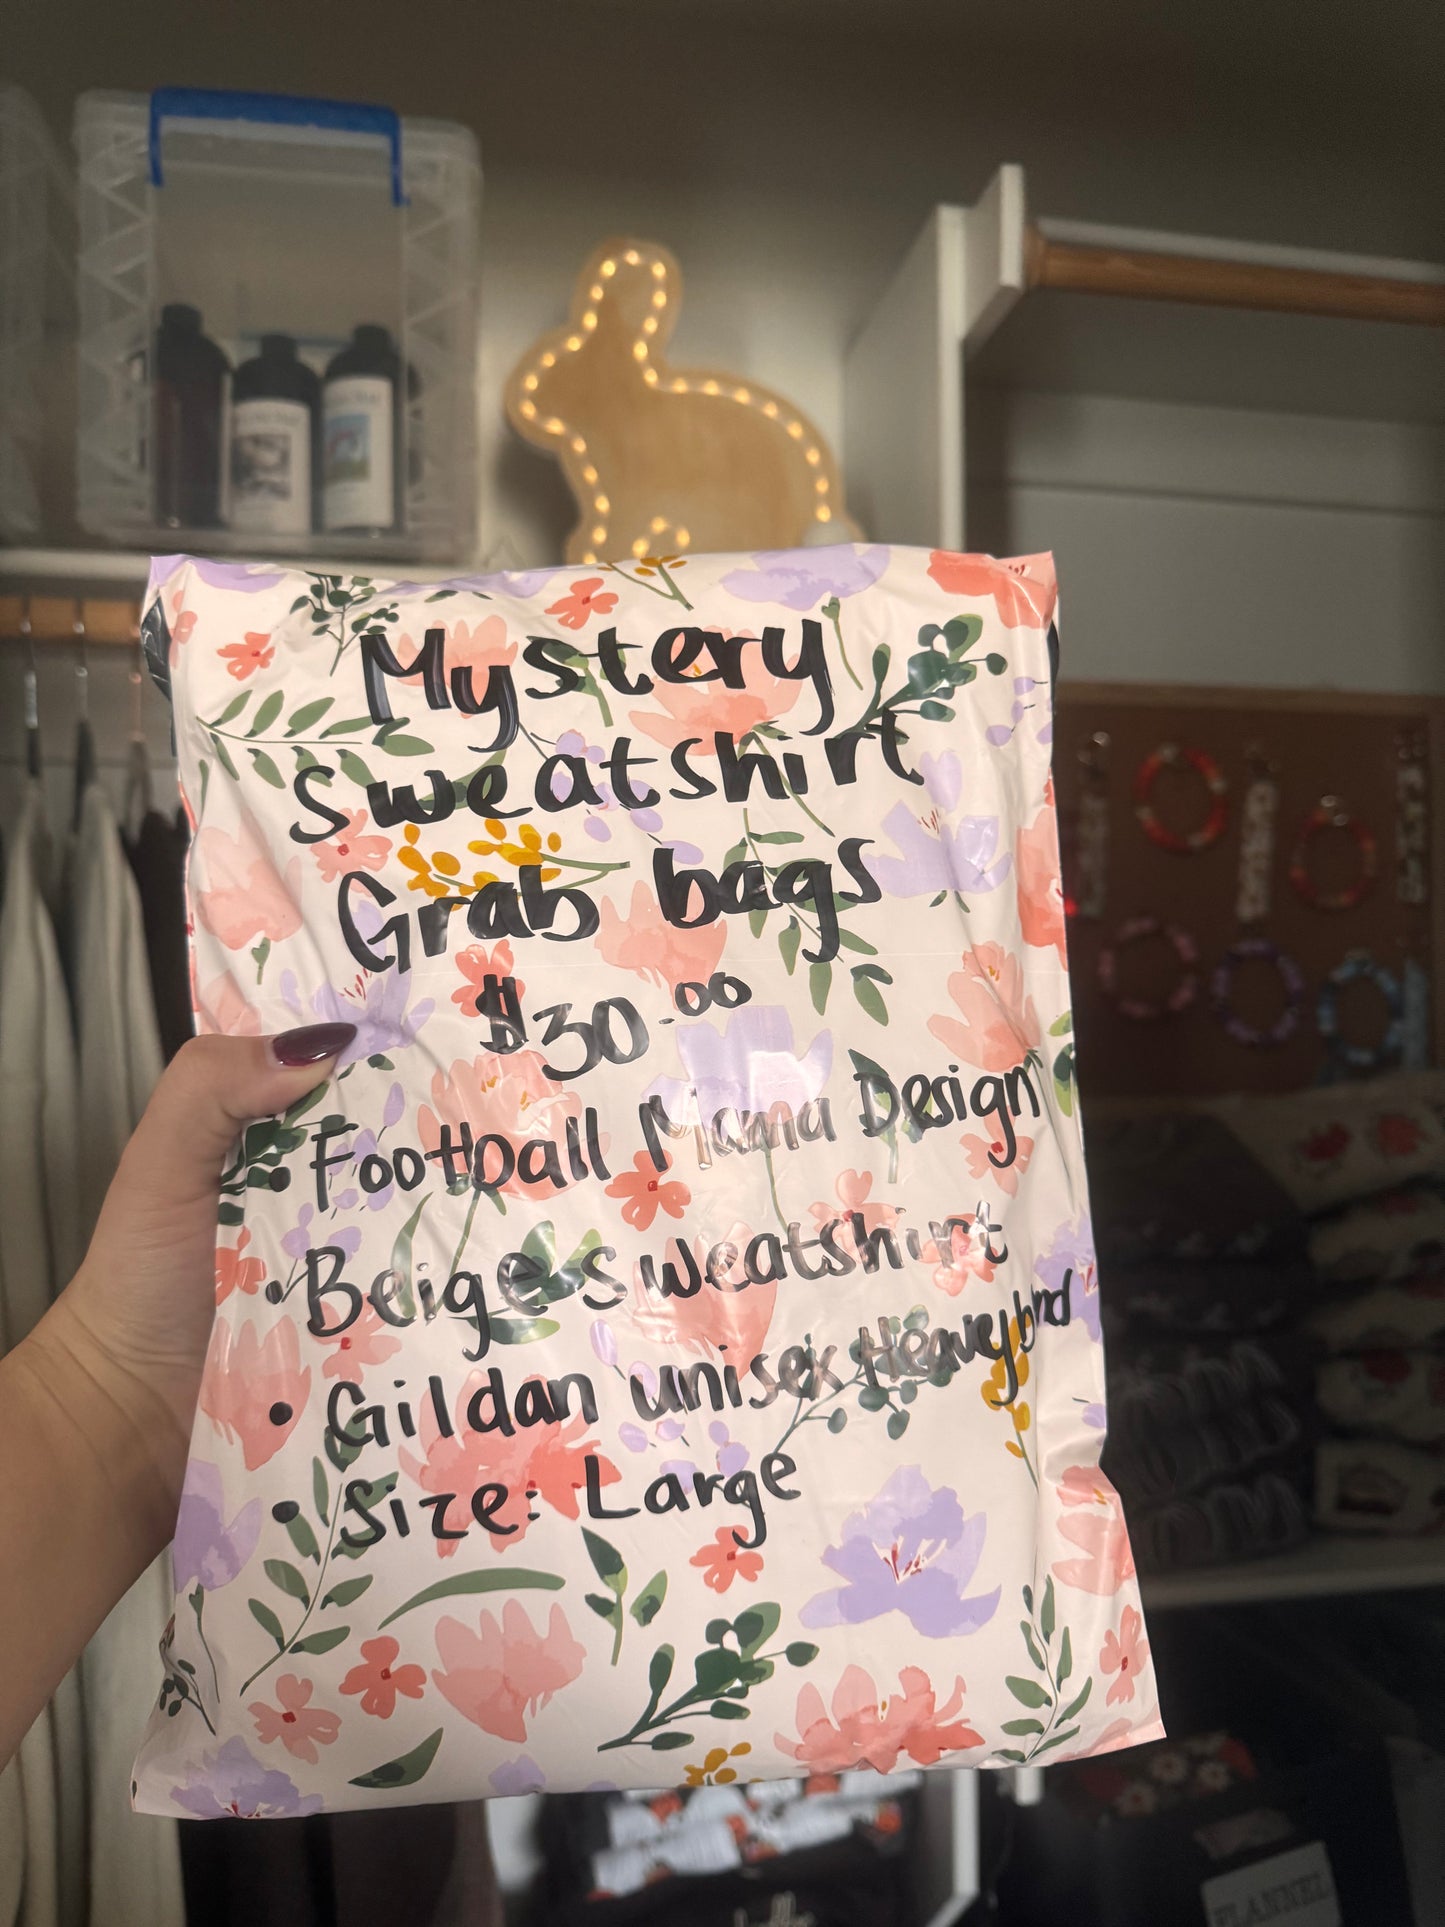 Mystery
sweatshirt
Grab bags
$30.00
• Football Mama Design
• Beige sweatshirt
• Gildan unisex Heavy blnd
• Size: Large
FLANNEL